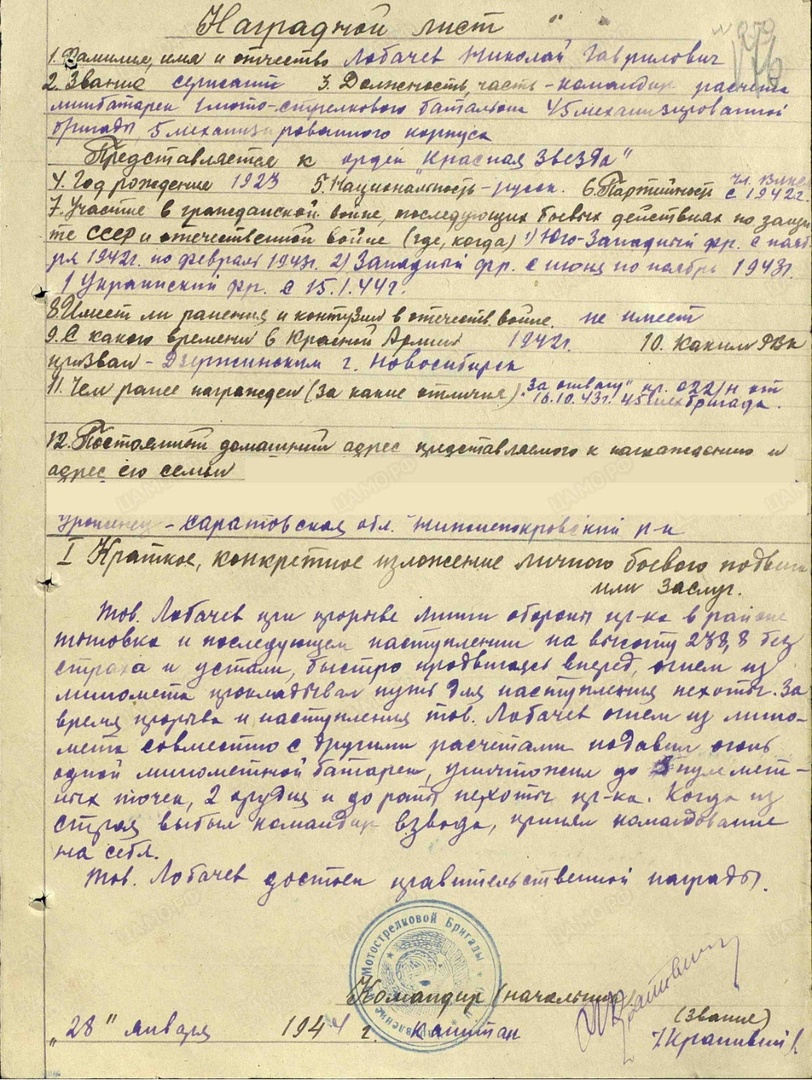 Наградной лист
1. Фамилия, имя и отчество Лобачев Николай Гаврилович
2. Звание сержант 3. Должность, часть - командир расчета
минбатареи 1 мото-стрелкового батальона 45 механизированной
бригады 5 механизированного корпуса
Представляется к орден "Красная Звезда"
4. Год рождения 1923 5. Национальность - русск. 6. Партийность чл. ВЛКСМ
с 1942 г.
7. Участие в гражданской войне, последующих боевых действиях по защи-
те СССР и отечественной войне (где, когда) 1) Юго-Западный фр. с нояб-
ря 1942 г. по февраль 1943 г. 2) Западный фр. с июня по ноябрь 1943 г.
1 Украинский фр. с 15.1.44 г.
8. Имеет ли ранения и контузии в отечеств. войне. не имеет
9. С какого времени в Красной Армии 1942 г. 10. Каким РВК
призван - Дзержинским г. Новосибирск
11. Чем ранее награжден (за какие отличия) "За отвагу" пр. 022/н от
16.10.43 г. 45 мехбригада.
12. Постоянный домашний адрес представляемого к награждению и
адрес его семьи
Уроженец - Саратовская обл. р-н
I Краткое, конкретное изложение личного боевого подвига
или заслуг.
Тов. Лобачев при прорыве линии обороны пр-ка в районе
Тыновка и последующем наступлении на высоту 238,8 без
страха и устали, быстро продвигаясь вперед, огнем из
миномета прокладывал путь для наступления пехоты. За
время прорыва и наступления тов. Лобачев огнем из мино-
мета совместно с другими расчетами подавил огонь
одной минометной батареи, уничтожил до 5 пулемет-
ных точек, 2 орудия и до роты пехоты пр-ка. Когда из
строя выбыл командир взвода, принял командование
на себя.
Тов. Лобачев достоин правительственной награды.
Мотострелковой Бригады
Управление
Командир (начальник)
(Звание)
"28" января 1944 г. Капитан